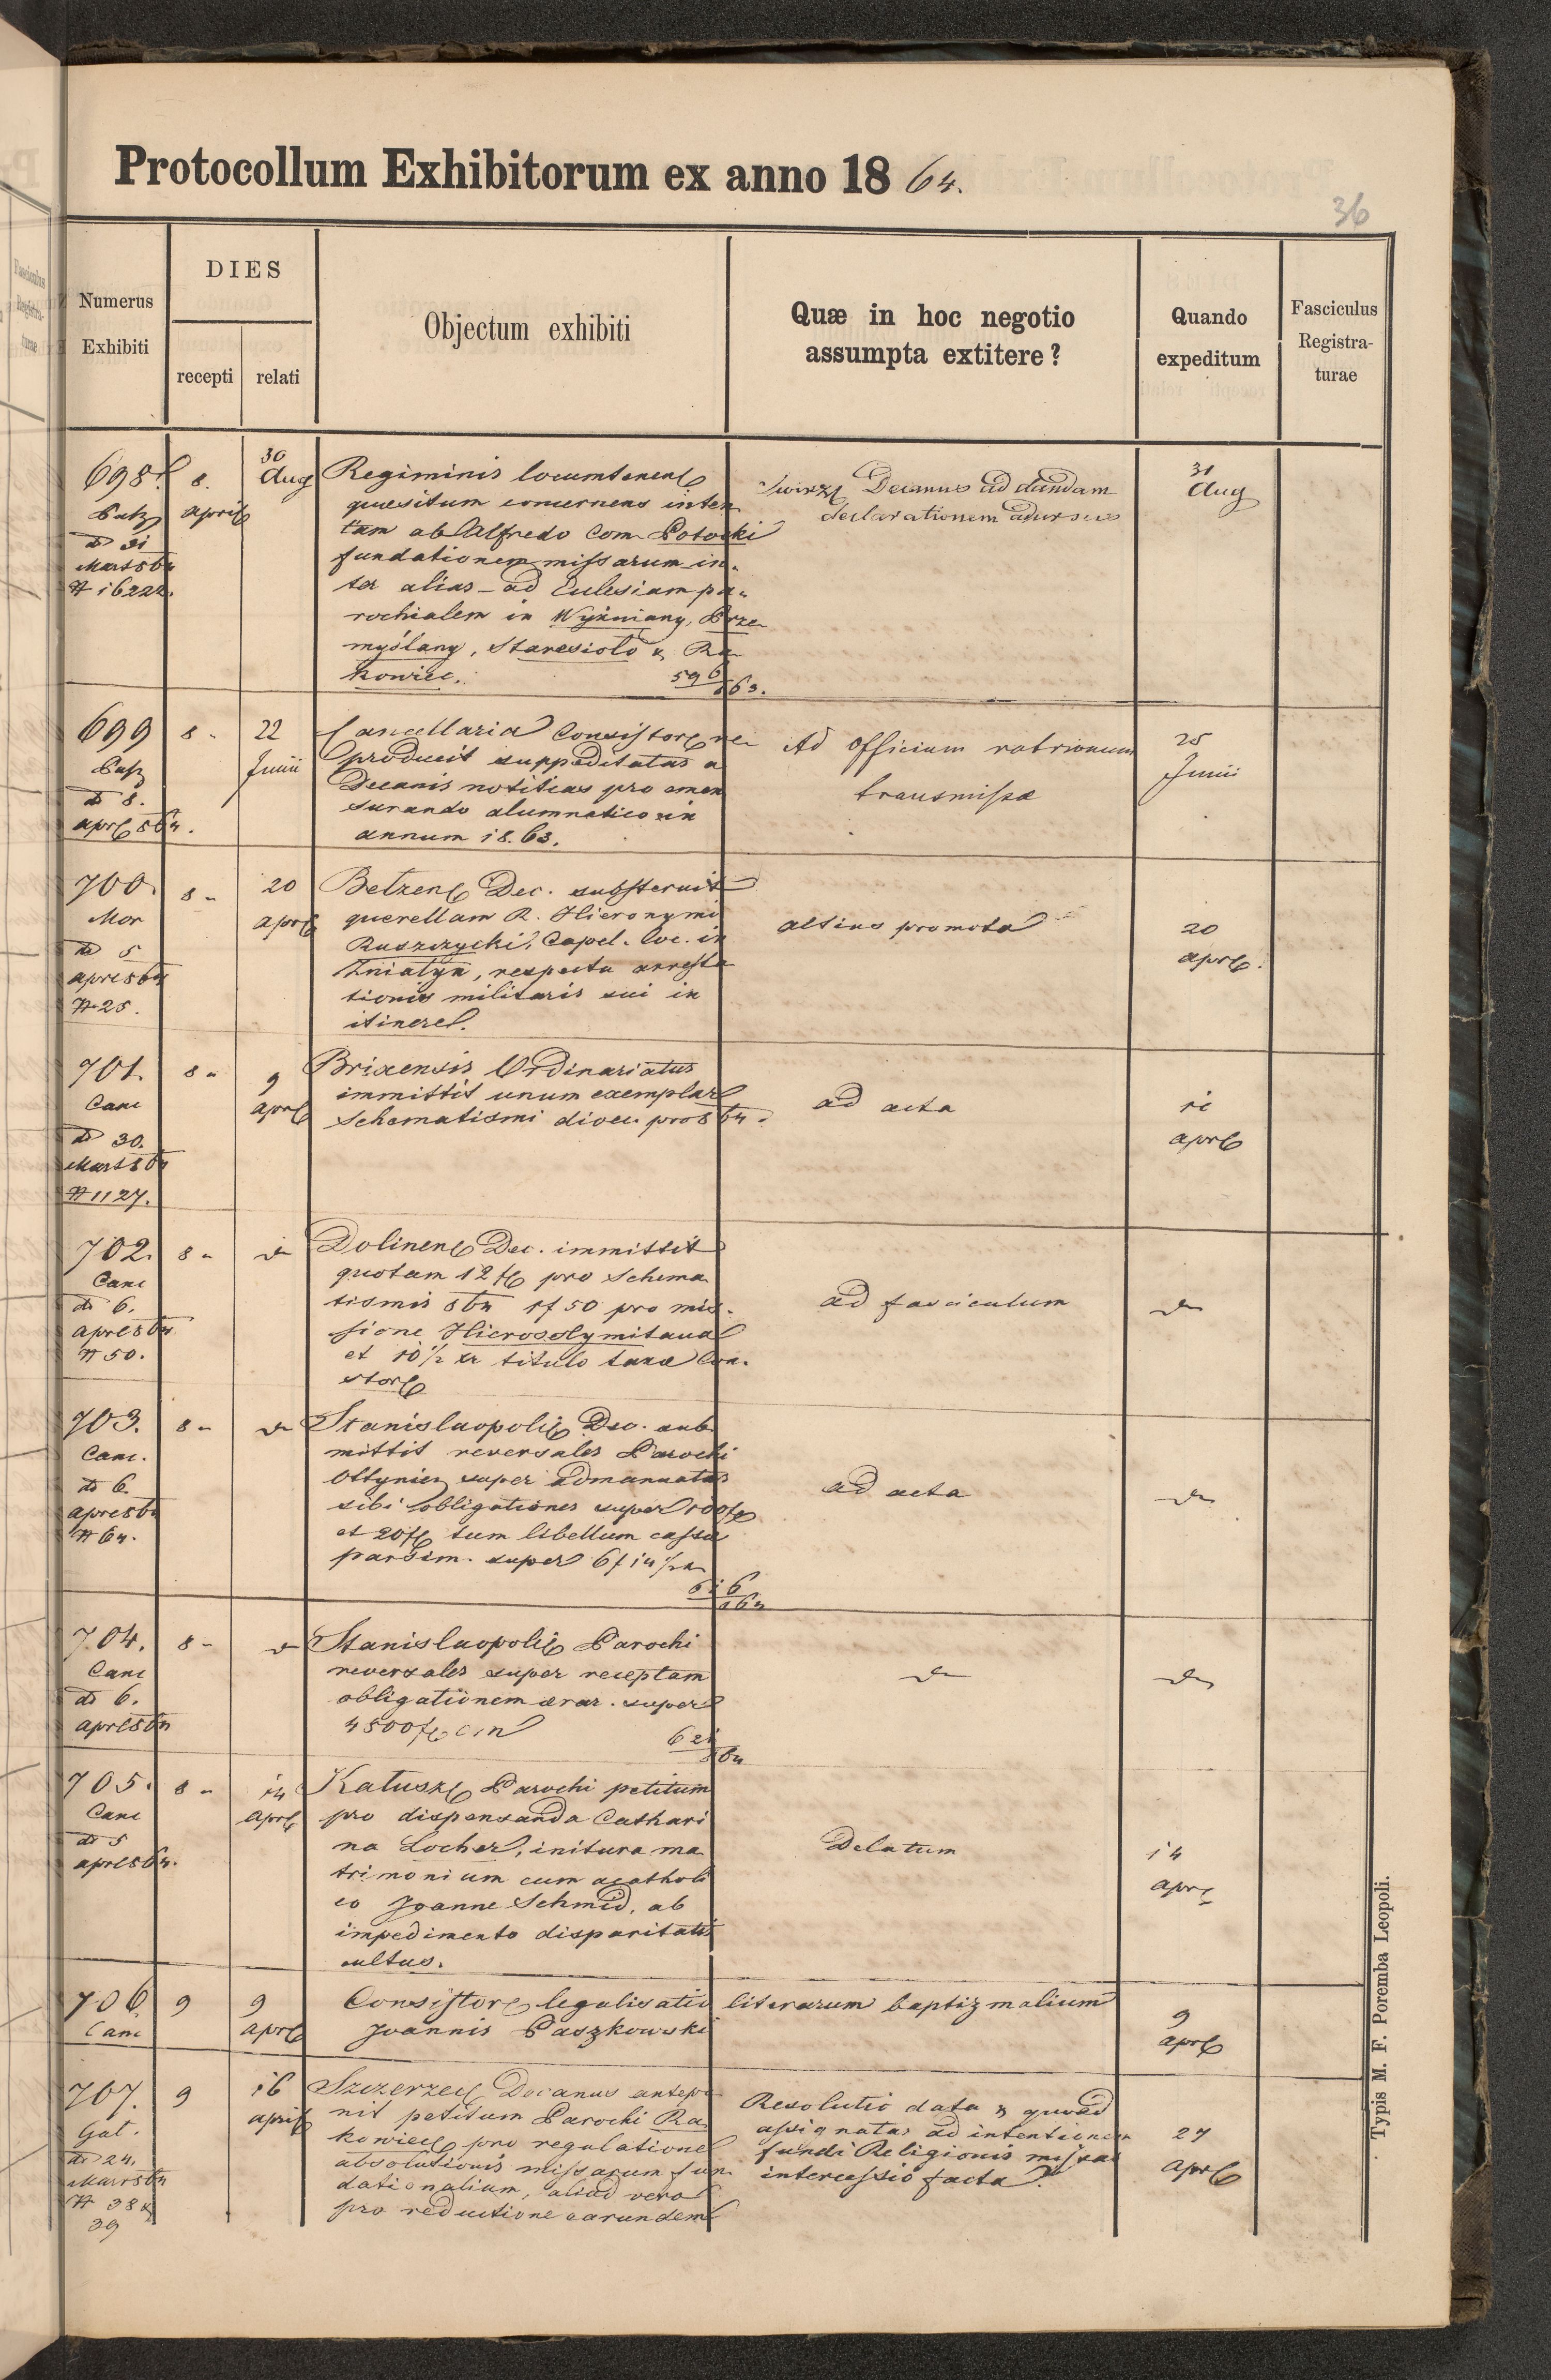 Protocollum Exhibitorum ex anno 18 64.
36
Numerus Exhibiti
DIES
recepti
relati
Objectum exhibiti
Quæ in hoc negotio assumpta extitere?
Quando expeditum
Fasciculus Registra-turae
698.
8. April
30 Aug
do 31
Mart 864
N 16222.
Regiminis locumtenent
quesitum concernens inten
tam ab Alfredo Com. Potocki
fundationem missarum in-
ter alias ad Ecclesiam pa-
rochialem in Wyżniany, Prze
myślany, Staresioło & Ra
kowiec.
596/863.
Swirz Decanus ad dandam
declarationem
31
Aug
699
8
22
Junii
do 8.
apr 864.
Cancellaria Consistor re
producit suppeditatas a
Decanis notitias pro emen
surando alumnatico in
annum 1863.
Ad Officium rationum
transmissa
25
Junii
700.
Mor
do 5
apr 864
N 25.
8
20
apr
Belzen Dec. substernit
querellam R. Hieronymi
Ruszczycki, Capel. loc. in
Żniatyn, respectu arresta
tionis militaris sui in
itinere.
altius promota
20
apr.
701.
Canc
do 30.
Mart 864
N 1127.
8
9
apr
Brixensis Ordinariatus
immittit unum exemplar
Schematismi dioec. pro 864.
ad acta
11
apr
702.
Canc
do 6.
apr 864
N 50.
8
do
Dolinen Dec. immittit
quotam 12 f pro Schema
tismis 864 1f 50 pro mis-
sione Hierosolymitana
et 10 1/2 xr titulo taxæ Con-
stor
ad fasciculum
do
703.
Canc.
do 6.
apr 864
N 64.
8
do
Stanislaopoli Dec. sub
mittit reversales Parochi
Ottynien super admanuatas
sibi obligationes super 100 f
et 20 f tum libellum cassæ
parsim. super 6 f 14 1/2
616/864
ad acta
do
704.
Canc
do 6.
apr 864
8
do
Stanislaopoli Parochi
reversales super receptam
obligationem ærar. super
4500 f cm
621/864
do
do
705.
Canc
do 5
apr 864.
8
14
apr
Kałusz Parochi petitum
pro dispensanda Cathari
na Locher, initura ma
trimonium cum acatholi
co Joanne Schmid, ab
impedimento disparitatis
cultus.
Delatum
14
apr
706
Canc
9
9
apr
Consistor legalisatio literarum baptizmalium
Joannis Paszkowski
9
apr
707.
Gat.
do 24.
Mar 864
N 38 &
39
9
16
april
Szczerzec Decanus antepo
nit petitum Parochi Ra
kowiec pro regulatione
absolutionis missarum fun
dationalium, aliud vero
pro reductione earundem
Resolutio data & quoad
assignatas ad intentionem
fundi Religionis missas
intercessio facta.
27
apr
Typis M. F. Poremba Leopoli.